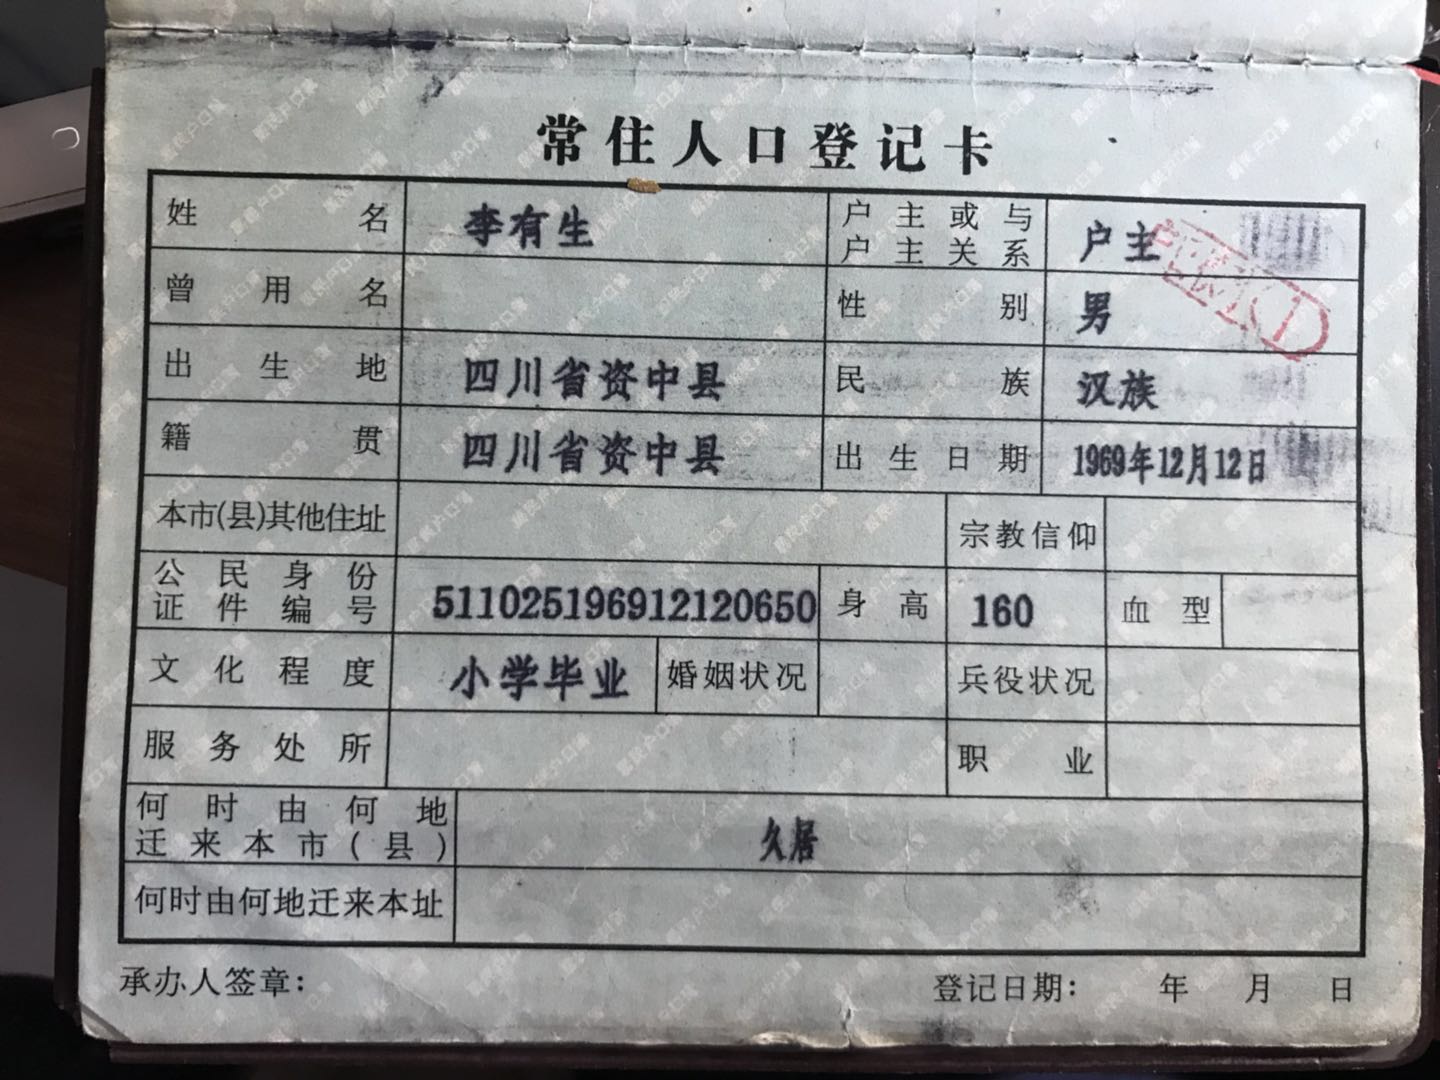 常住人口登记卡
姓名 李有生 户主或与户主关系 户主
曾用名 性别 男
出生地 四川省资中县 民族 汉族
籍贯 四川省资中县 出生日期 1969年12月12日
本市(县)其他住址 宗教信仰
公民身份证件编号 511025196912120650 身高 160 血型
文化程度 小学毕业 婚姻状况 兵役状况
服务处所 职业
何时由何地迁来本市(县) 久居
何时由何地迁来本址
承办人签章： 登记日期： 年 月 日